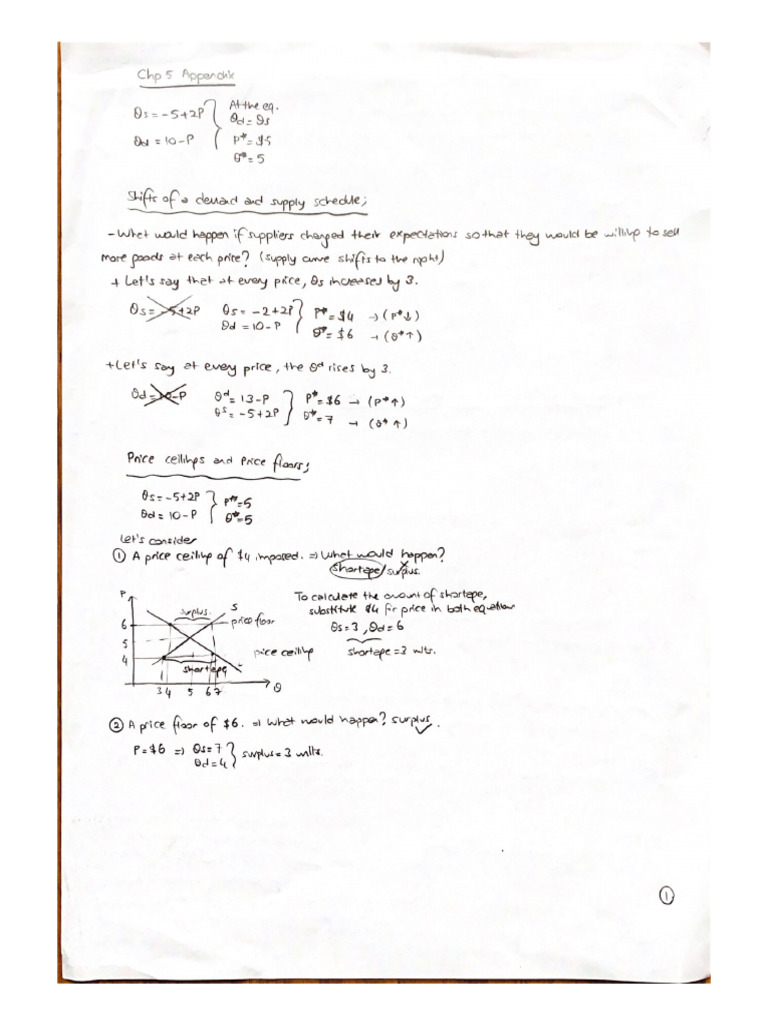 Chp 5 Appendix
Qs = -5+2P
Qd = 10-P
At the eq.
Qd = Qs
P* = $5
Q* = 5
Shifts of a demand and supply schedule;
- What would happen if suppliers changed their expectations so that they would be willing to sell
more goods at each price? (supply curve shifts to the right)
+ Let's say that at every price, Qs increases by 3.
Qs = -5+2P Qs = -2+2P P* = $4 → (P*↓)
Qd = 10-P Q* = $6 → (Q*↑)
+ Let's say at every price, the Qd rises by 3.
Qd = 10-P Qd = 13-P P* = $6 → (P*↑)
Qs = -5+2P Q* = 7 → (Q*↑)
Price ceilings and Price floors;
Qs = -5+2P P* = 5
Qd = 10-P Q* = 5
Let's consider
① A price ceiling of $4 imposed. ⇒ What would happen?
shortage/surplus.
To calculate the amount of shortage,
substitute $4 for price in both equations
Qs = 3, Qd = 6
shortage = 3 units.
P
surplus S
6 price floor
5
4 price ceiling
shortage
3 4 5 6 7 Q
② A price floor of $6. ⇒ What would happen? surplus.
P = $6 ⇒ Qs = 7
Qd = 4
surplus = 3 units.
1